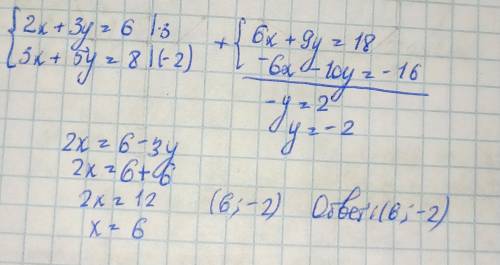 {2x + 3y = 6 |·3
{3x + 5y = 8 |(-2)
+ {6x + 9y = 18
-6x - 10y = -16
-y = 2
y = -2
2x = 6 - 3y
2x = 6 + 6
2x = 12
x = 6
(6; -2) Ответ: (6; -2)